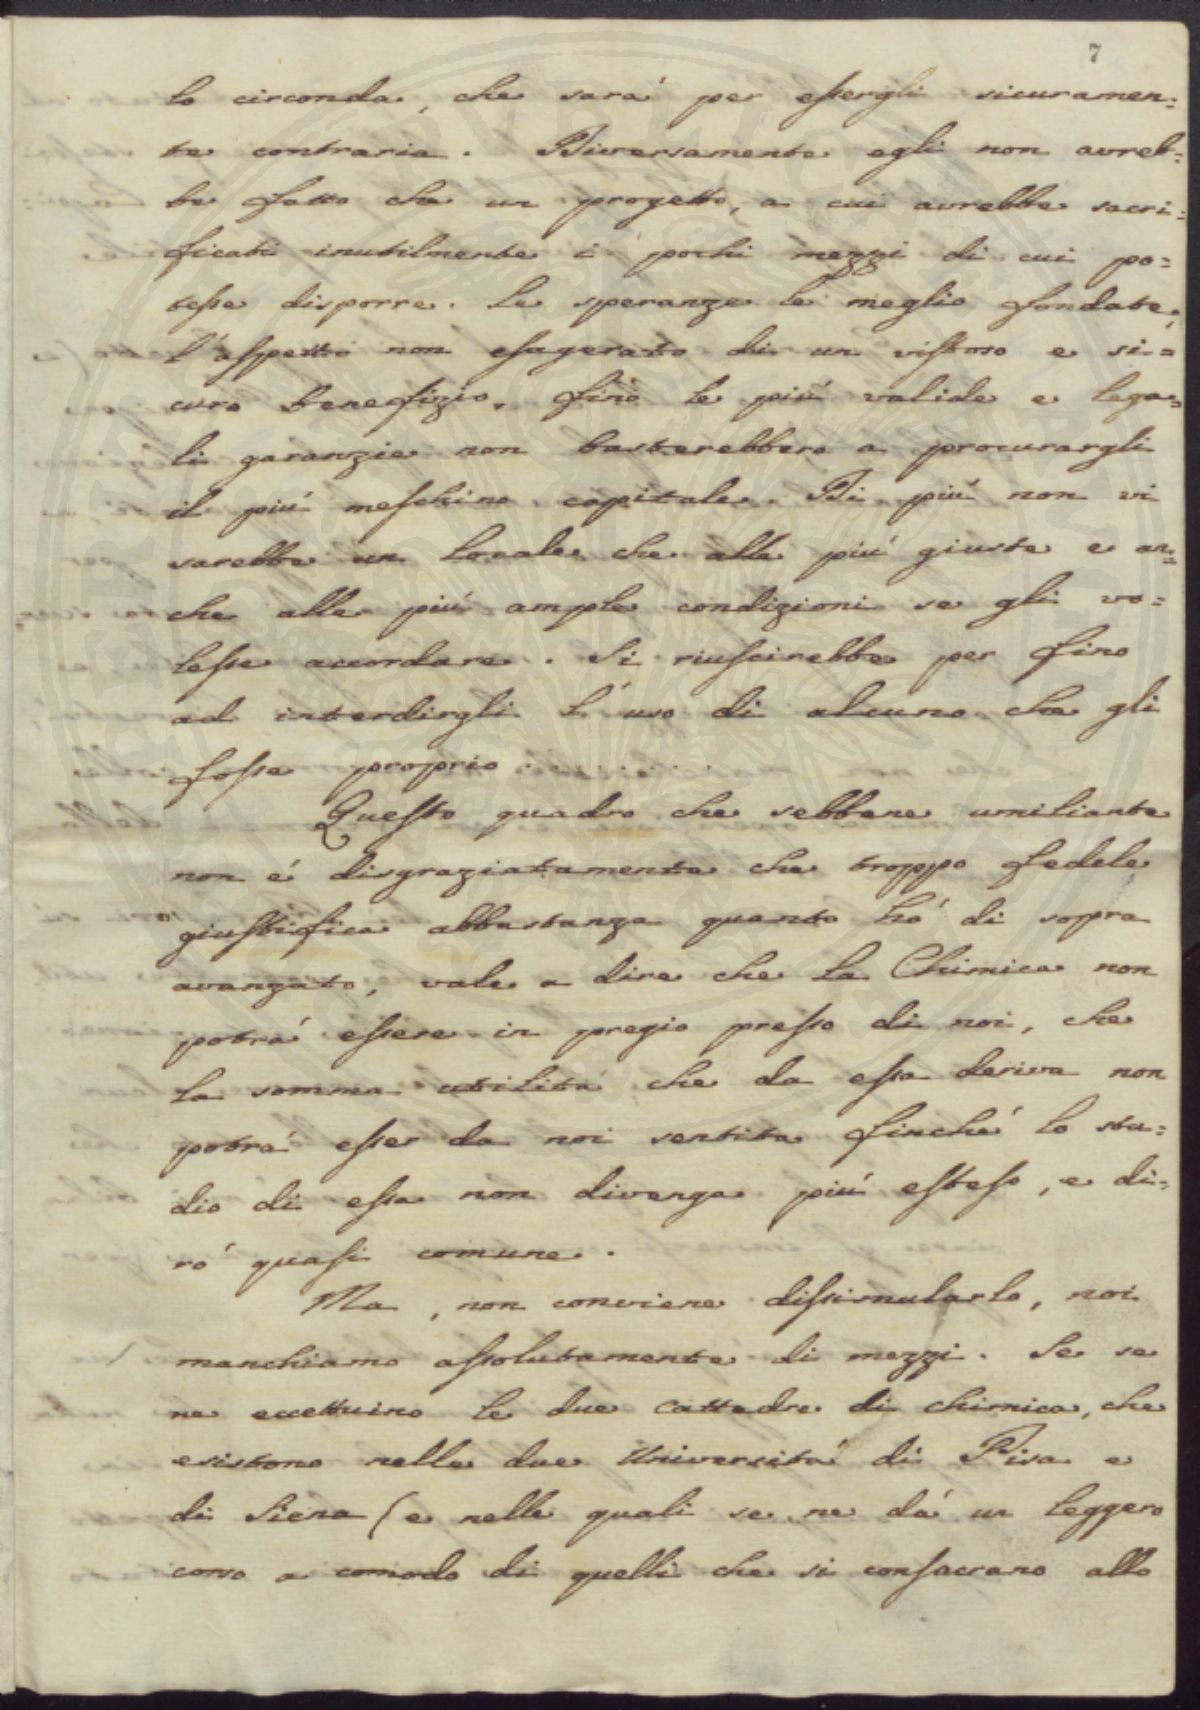 7
lo circonda, che sarà per essergli sicuramen=
te contraria. Diversamente egli non avreb=
be fatto che un progetto, a cui avrebbe sacri=
ficati inutilmente i pochi mezzi di cui po=
tesse disporre. Le speranze le meglio fondate,
l'aspetto non esagerato di un vistoso e si=
curo benefizio, fino le più valide e lega=
li garanzie non basterebbero a procurargli
il più meschino capitale. Di più non vi
sarebbe un locale che alle più giuste e an=
che alle più ample condizioni se gli vo=
lesse accordare. Si riuscirebbe per fino
ad interdirgli l'uso di alcuno che gli
fosse proprio ..........
Questo quadro che sebbene umiliante
non è disgraziatamente che troppo fedele
giustifica abbastanza quanto hò di sopra
avanzato, vale a dire che la Chimica non
potrà essere in pregio presso di noi, che
la somma utilità che da essa deriva non
potrà esser da noi sentita finchè lo stu=
dio di essa non divenga più esteso, e di=
rò quasi comune.
Ma, non conviene dissimularlo, noi
manchiamo assolutamente di mezzi. Se se
ne eccettuino le due Cattedre di chimica, che
esistono nelle due Università di Pisa e
di Siena (e nelle quali se ne dà un leggero
corso a comodo di quelli che si consacrano allo